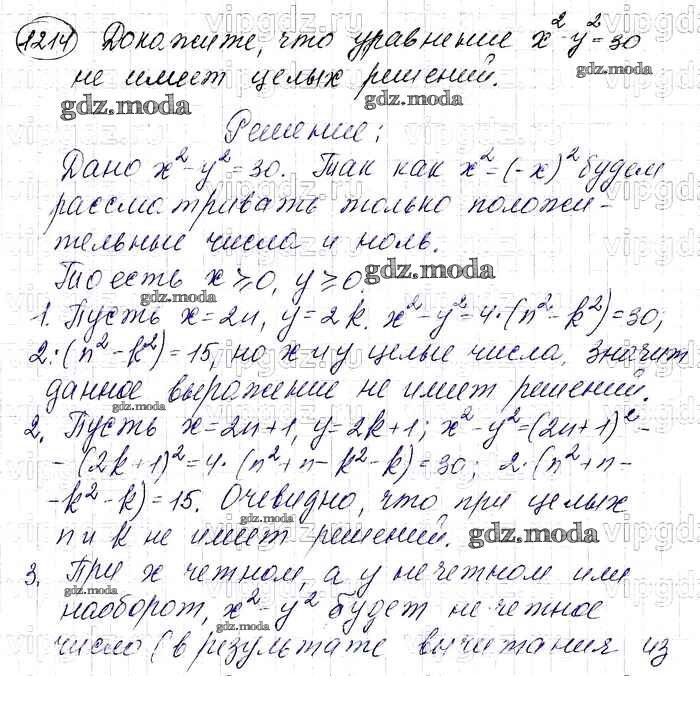 1214 Докажите, что уравнение x²-y²=30
не имеет целых решений.
gdz.moda
gdz.moda
Решение:
Дано x²-y²=30. Так как x²=(-x)² будем
рассматривать только положи-
тельные числа и ноль.
То есть x⩾0, y⩾0.
gdz.moda
gdz.moda
1. Пусть x=2n, y=2k. x²-y²=4·(n²-k²)=30;
gdz.moda
2·(n²-k²)=15, но x и y целые числа, значит
данное выражение не имеет решений.
gdz.moda
2. Пусть x=2n+1, y=2k+1; x²-y²=(2n+1)²-
-(2k+1)²=4·(n²+n-k²-k)=30; 2·(n²+n-
-k²-k)=15. Очевидно, что при целых
gdz.moda
n и k не имеет решений.
gdz.moda
3. При x четном, а y нечетном или
gdz.moda
наоборот, x²-y² будет нечетное
gdz.moda
число (в результате вычитания из
gdz.moda